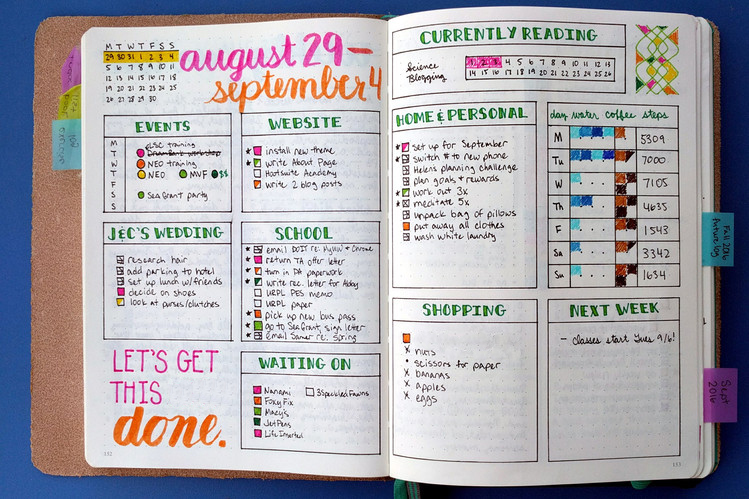 M T W T F S S
29 30 31 1 2 3 4
5 6 7 8 9 10 11
12 13 14 15 16 17 18
19 20 21 22 23 24 25
26 27 28 29 30
august 29 –
september 4
EVENTS
M
T
W
T
F
S
S
LSC training
Drum Bank workshop
NEO training
NEO MVF $$
Sea Grant party
WEBSITE
install new theme
write About Page
Hootsuite Academy
write 2 blog posts
J&C'S WEDDING
research hair
add parking to hotel
set up lunch w/friends
decide on shoes
look at purses/clutches
SCHOOL
email DoIT re: MyUW + Chrome
return TA offer letter
turn in DA paperwork
write rec. letter for Abby
URPL PES memo
URPL paper
pick up new bus pass
go to Sea Grant, sign letter
email Samer re: spring
LET'S GET
THIS
done.
WAITING ON
Nanami
3 Speckled Fawns
Foxy Fix
Macy's
Jet Pens
Life Inserted
112
CURRENTLY READING
Science
Blogging
1 2 3 4 5 6 7 8 9 10 11 12 13
14 15 16 17 18 19 20 21 22 23 24 25 26
HOME & PERSONAL
set up for September
switch # to new phone
Helens planning challenge
plan goals + rewards
work out 3x
meditate 5x
unpack bag of pillows
put away all clothes
wash white laundry
day water coffee steps
M 5309
Tu 7000
W 7105
Th 4635
F 1543
Sa 3342
Su 1634
SHOPPING
x nuts
• scissors for paper
x bananas
x apples
x eggs
NEXT WEEK
– classes start Tues 9/6!
113
Fall 2016
Sept
2016